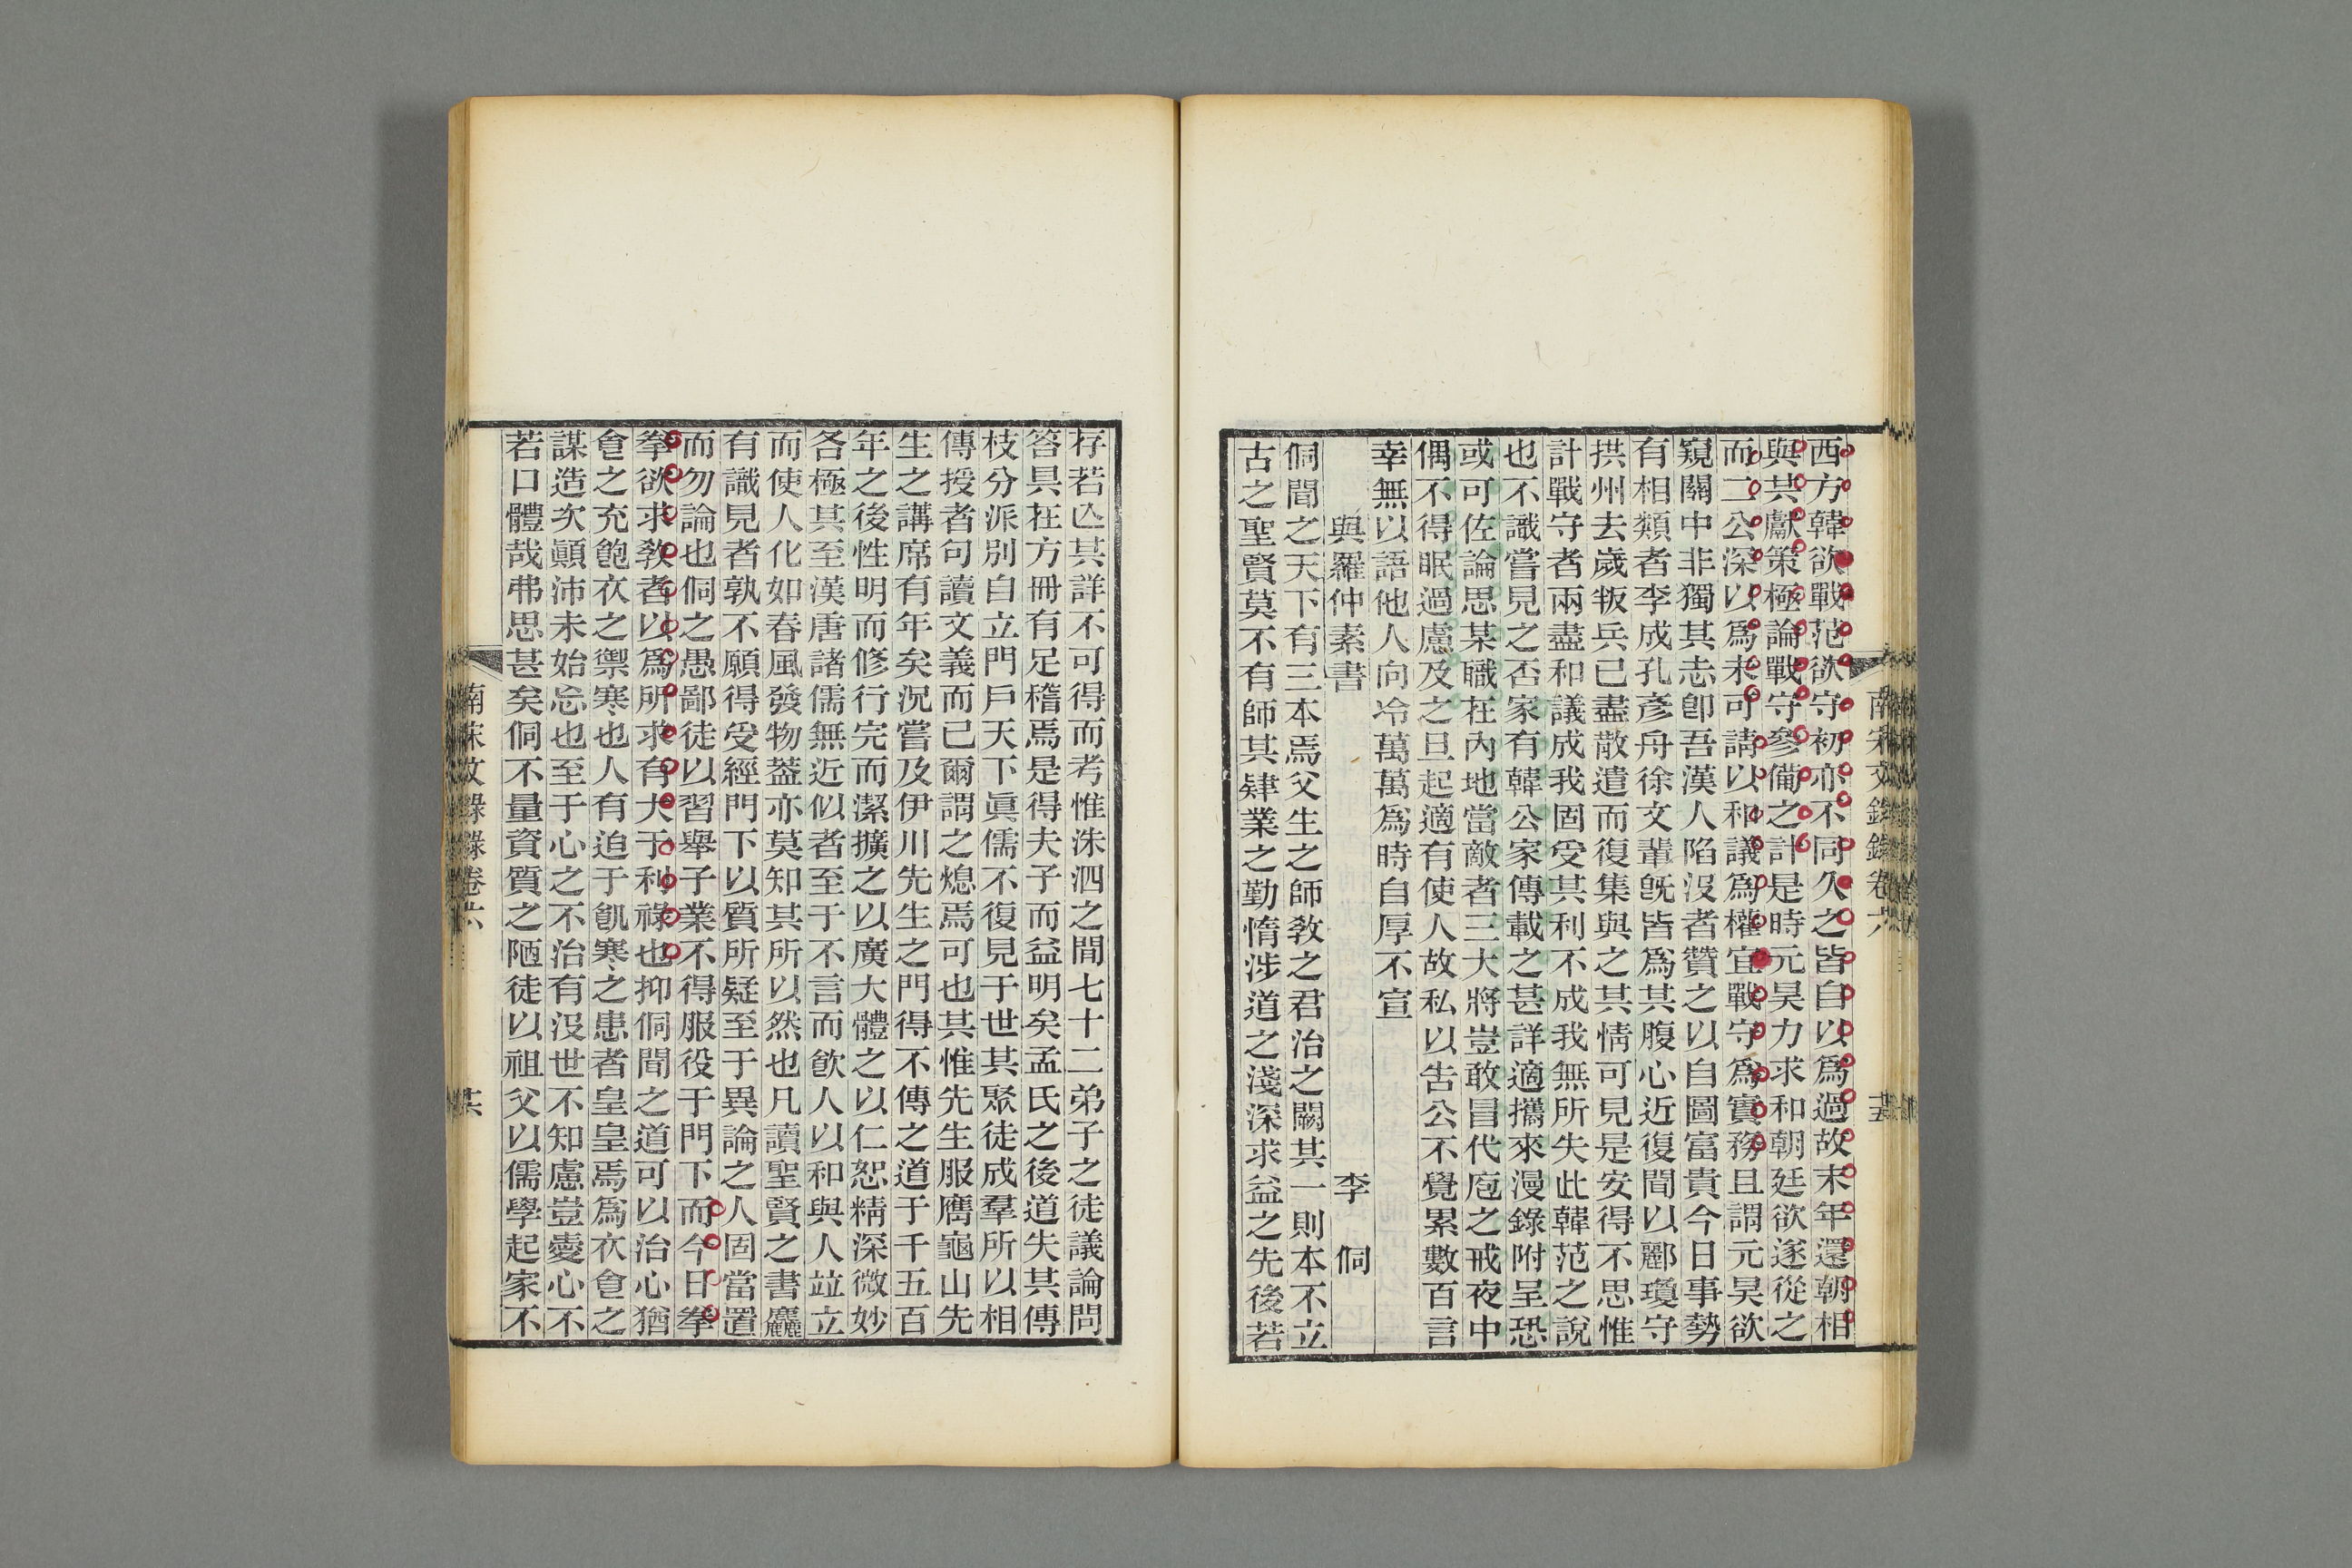 西方韓欲戰范欲守初亦不同久之皆自以爲過故末年還朝相
與共獻策極論戰守參備之計是時元昊力求和朝廷欲遂從之
而二公深以爲未可請以和議爲權宜戰守爲實務且謂元昊欲
窺關中非獨其志卽吾漢人陷沒者贊之以自圖富貴今日事勢
有相類者李成孔彥舟徐文輩旣皆爲其腹心近復聞以酈瓊守
拱州去歲叛兵已盡散遣而復集與之其情可見是安得不思惟
計戰守者兩盡和議成我固受其利不成我無所失此韓范之說
也不識嘗見之否家有韓公家傳載之甚詳適攜來漫錄附呈恐
或可佐論思某職在內地當敵者三大將豈敢冒代庖之戒夜中
偶不得眠過慮及之旦起適有使人故私以吿公不覺累數百言
幸無以語他人向冷萬萬爲時自厚不宣
與羅仲素書 李侗
侗聞之天下有三本焉父生之師敎之君治之闕其一則本不立
古之聖賢莫不有師其肄業之勤惰涉道之淺深求益之先後若
南宋文錄錄卷六 十五
存若亾其詳不可得而考惟洙泗之間七十二弟子之徒議論問
答具在方冊有足稽焉是得夫子而益明矣孟氏之後道失其傳
枝分派別自立門戶天下眞儒不復見于世其聚徒成羣所以相
傳授者句讀文義而已爾謂之熄焉可也其惟先生服膺龜山先
生之講席有年矣況嘗及伊川先生之門得不傳之道于千五百
年之後性明而修行完而潔擴之以廣大體之以仁恕精深微妙
各極其至漢唐諸儒無近似者至于不言而飮人以和與人竝立
而使人化如春風發物葢亦莫知其所以然也凡讀聖賢之書麤
有識見者孰不願得受經門下以質所疑至于異論之人固當置
而勿論也侗之愚鄙徒以習舉子業不得服役于門下而今日拳
拳欲求敎者以爲所求有大于利祿也抑侗聞之道可以治心猶
食之充飽衣之禦寒也人有迫于飢寒之患者皇皇焉爲衣食之
謀造次顚沛未始忘也至于心之不治有沒世不知慮豈愛心不
若口體哉弗思甚矣侗不量資質之陋徒以祖父以儒學起家不
南宋文錄錄卷六 十六